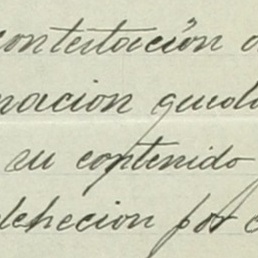 contestación
nacion quedo
su contenido
por